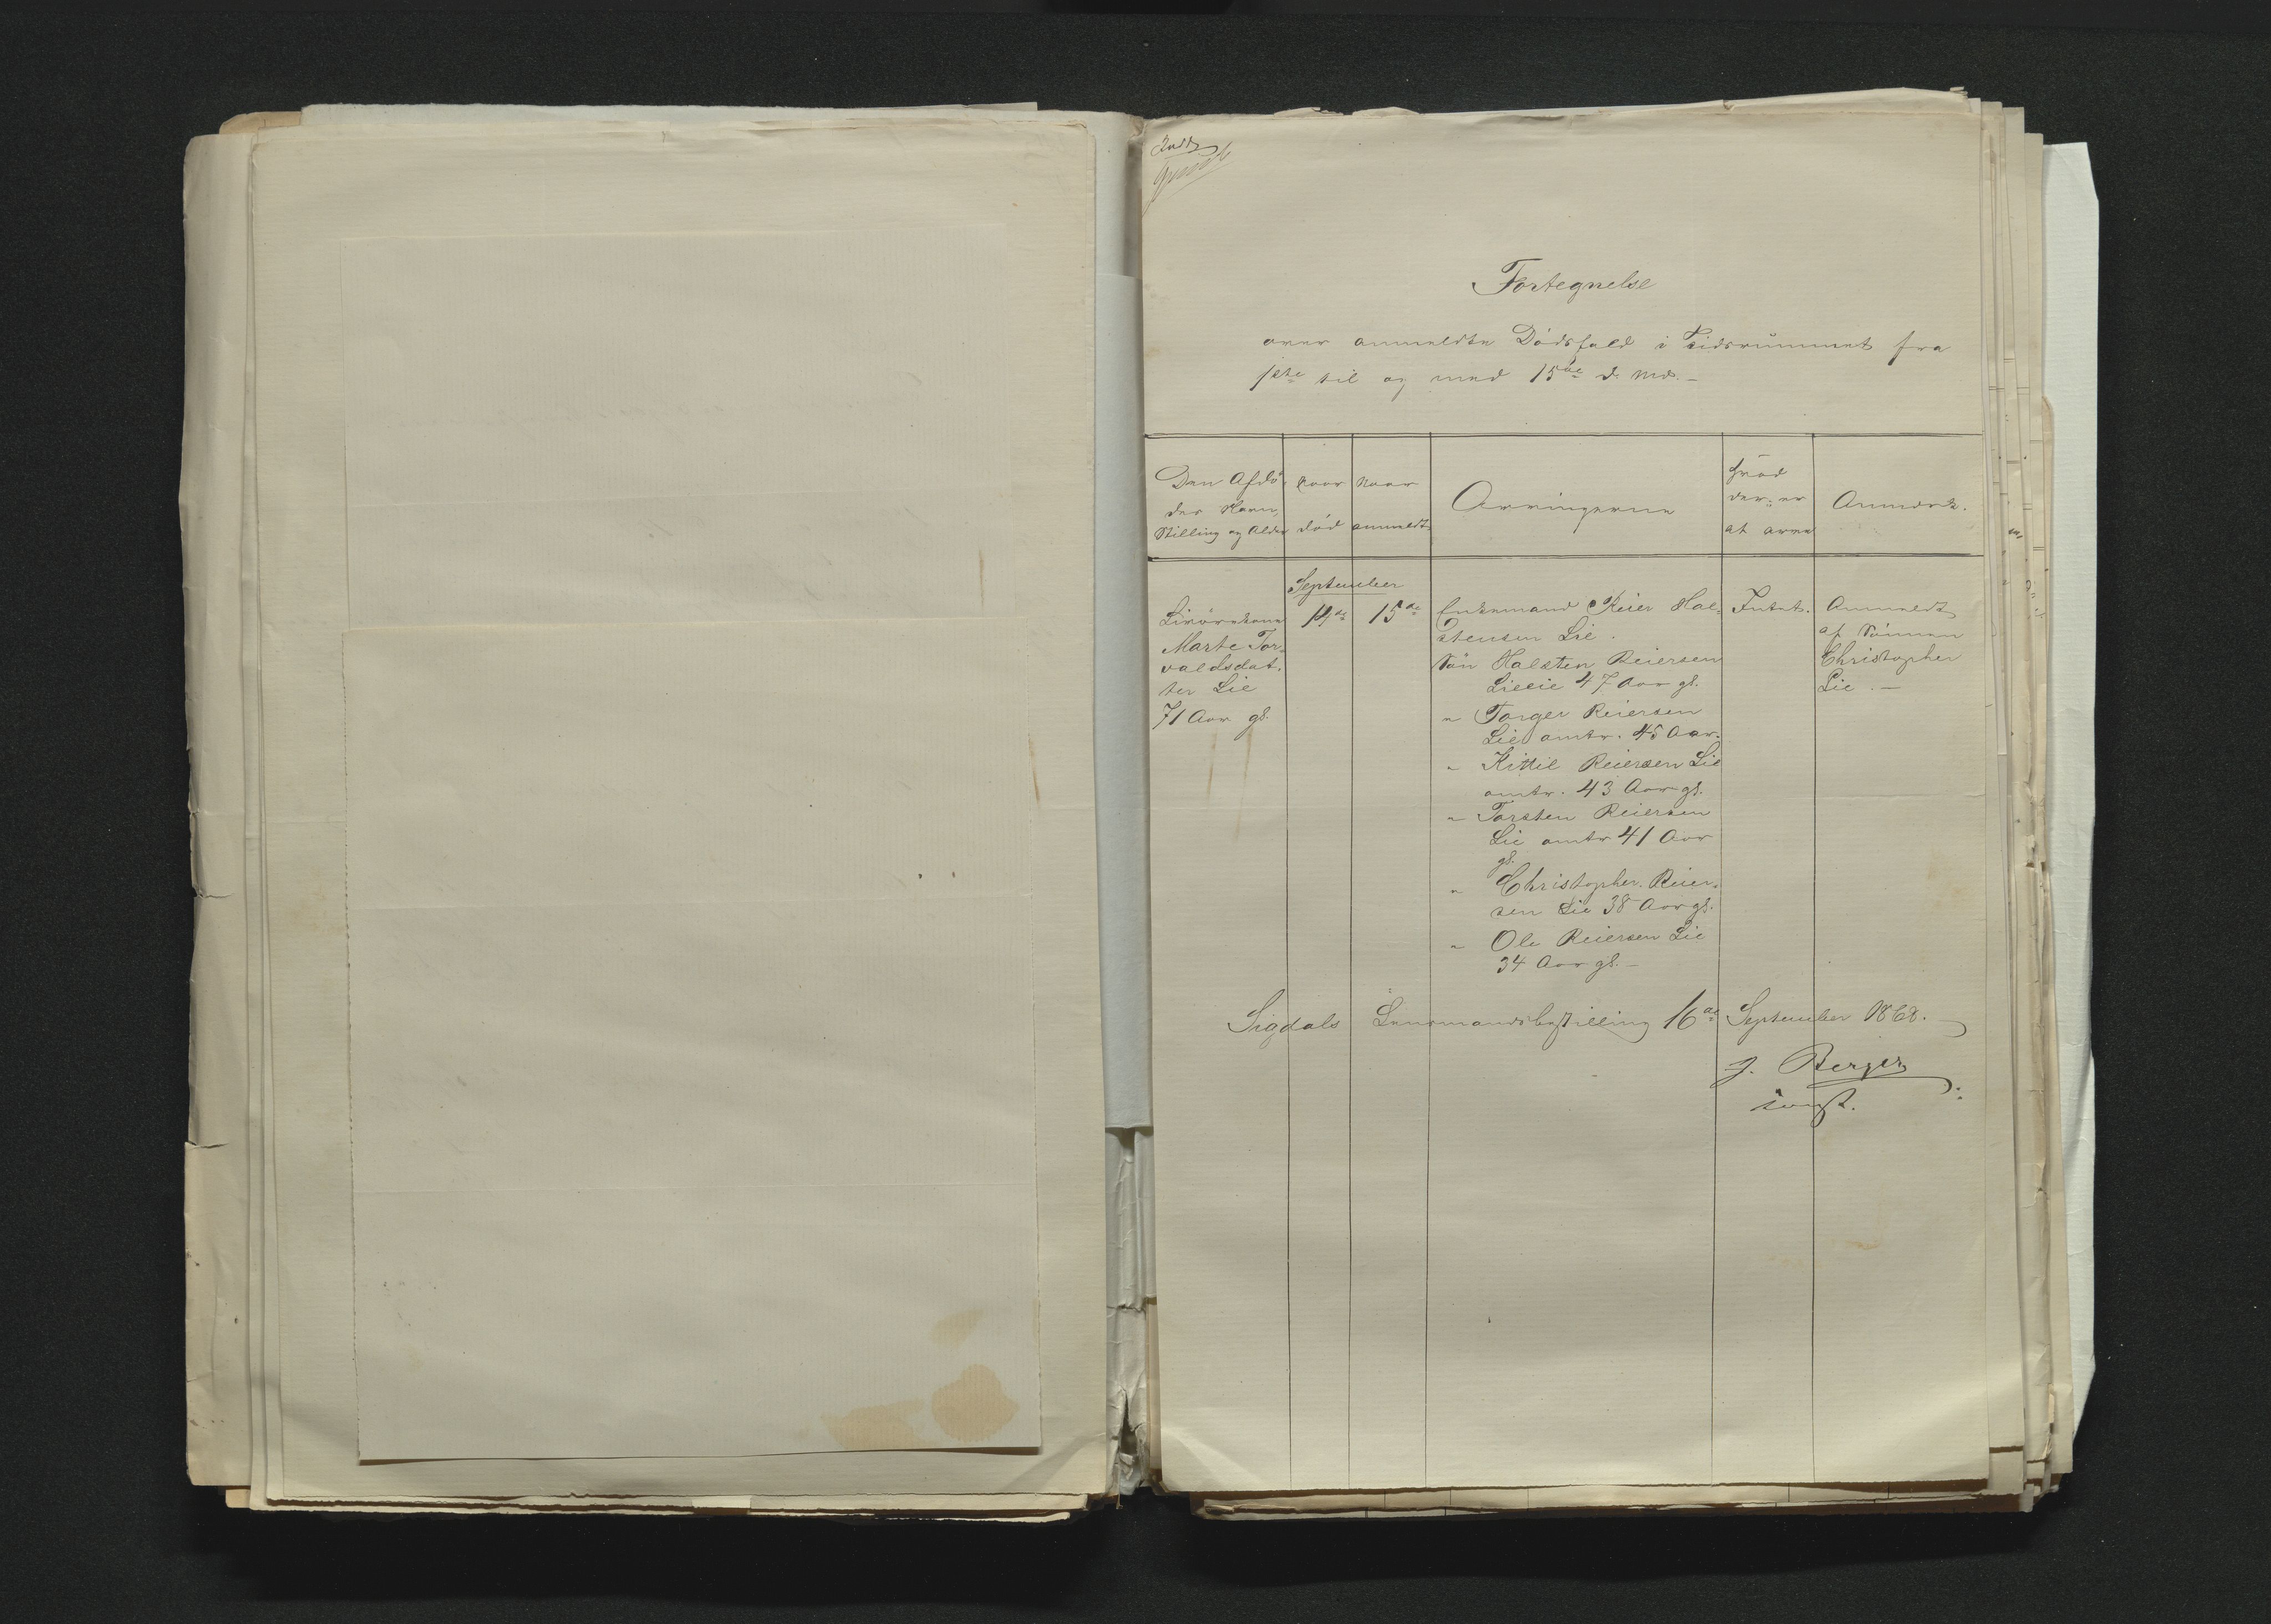 Fortegnelse
over anmeldte Dödsfald i Tidsrummet fra
1ste til og med 15de d. Md. –
Den Afdö-
des Navn,
Stilling og Alder
naar
död
naar
anmeldt
Arvingerne
Hvad
der er
at arve
Anmærk.
September
Livörekone
Marte Tor-
valdsdat-
ter Lie
71 Aar gl.
14de
15de
Enkemand Reier Hal-
stensen Lie.
Sön Halsten Reiersen
Lillie 47 Aar gl.
" Torger Reiersen
Lie omtr. 45 Aar.
" Kittil Reiersen Lie
omtr. 43 Aar gl.
" Torsten Reiersen
Lie omtr 41 Aar
gl.
" Christopher Reier-
sen Lie 38 Aar gl.
" Ole Reiersen Lie
34 Aar gl. –
Intet.
Anmeldt
af Sönnen
Christopher
Lie. –
Sigdals Lensmandsbestilling 16de September 1868.
J. Berger